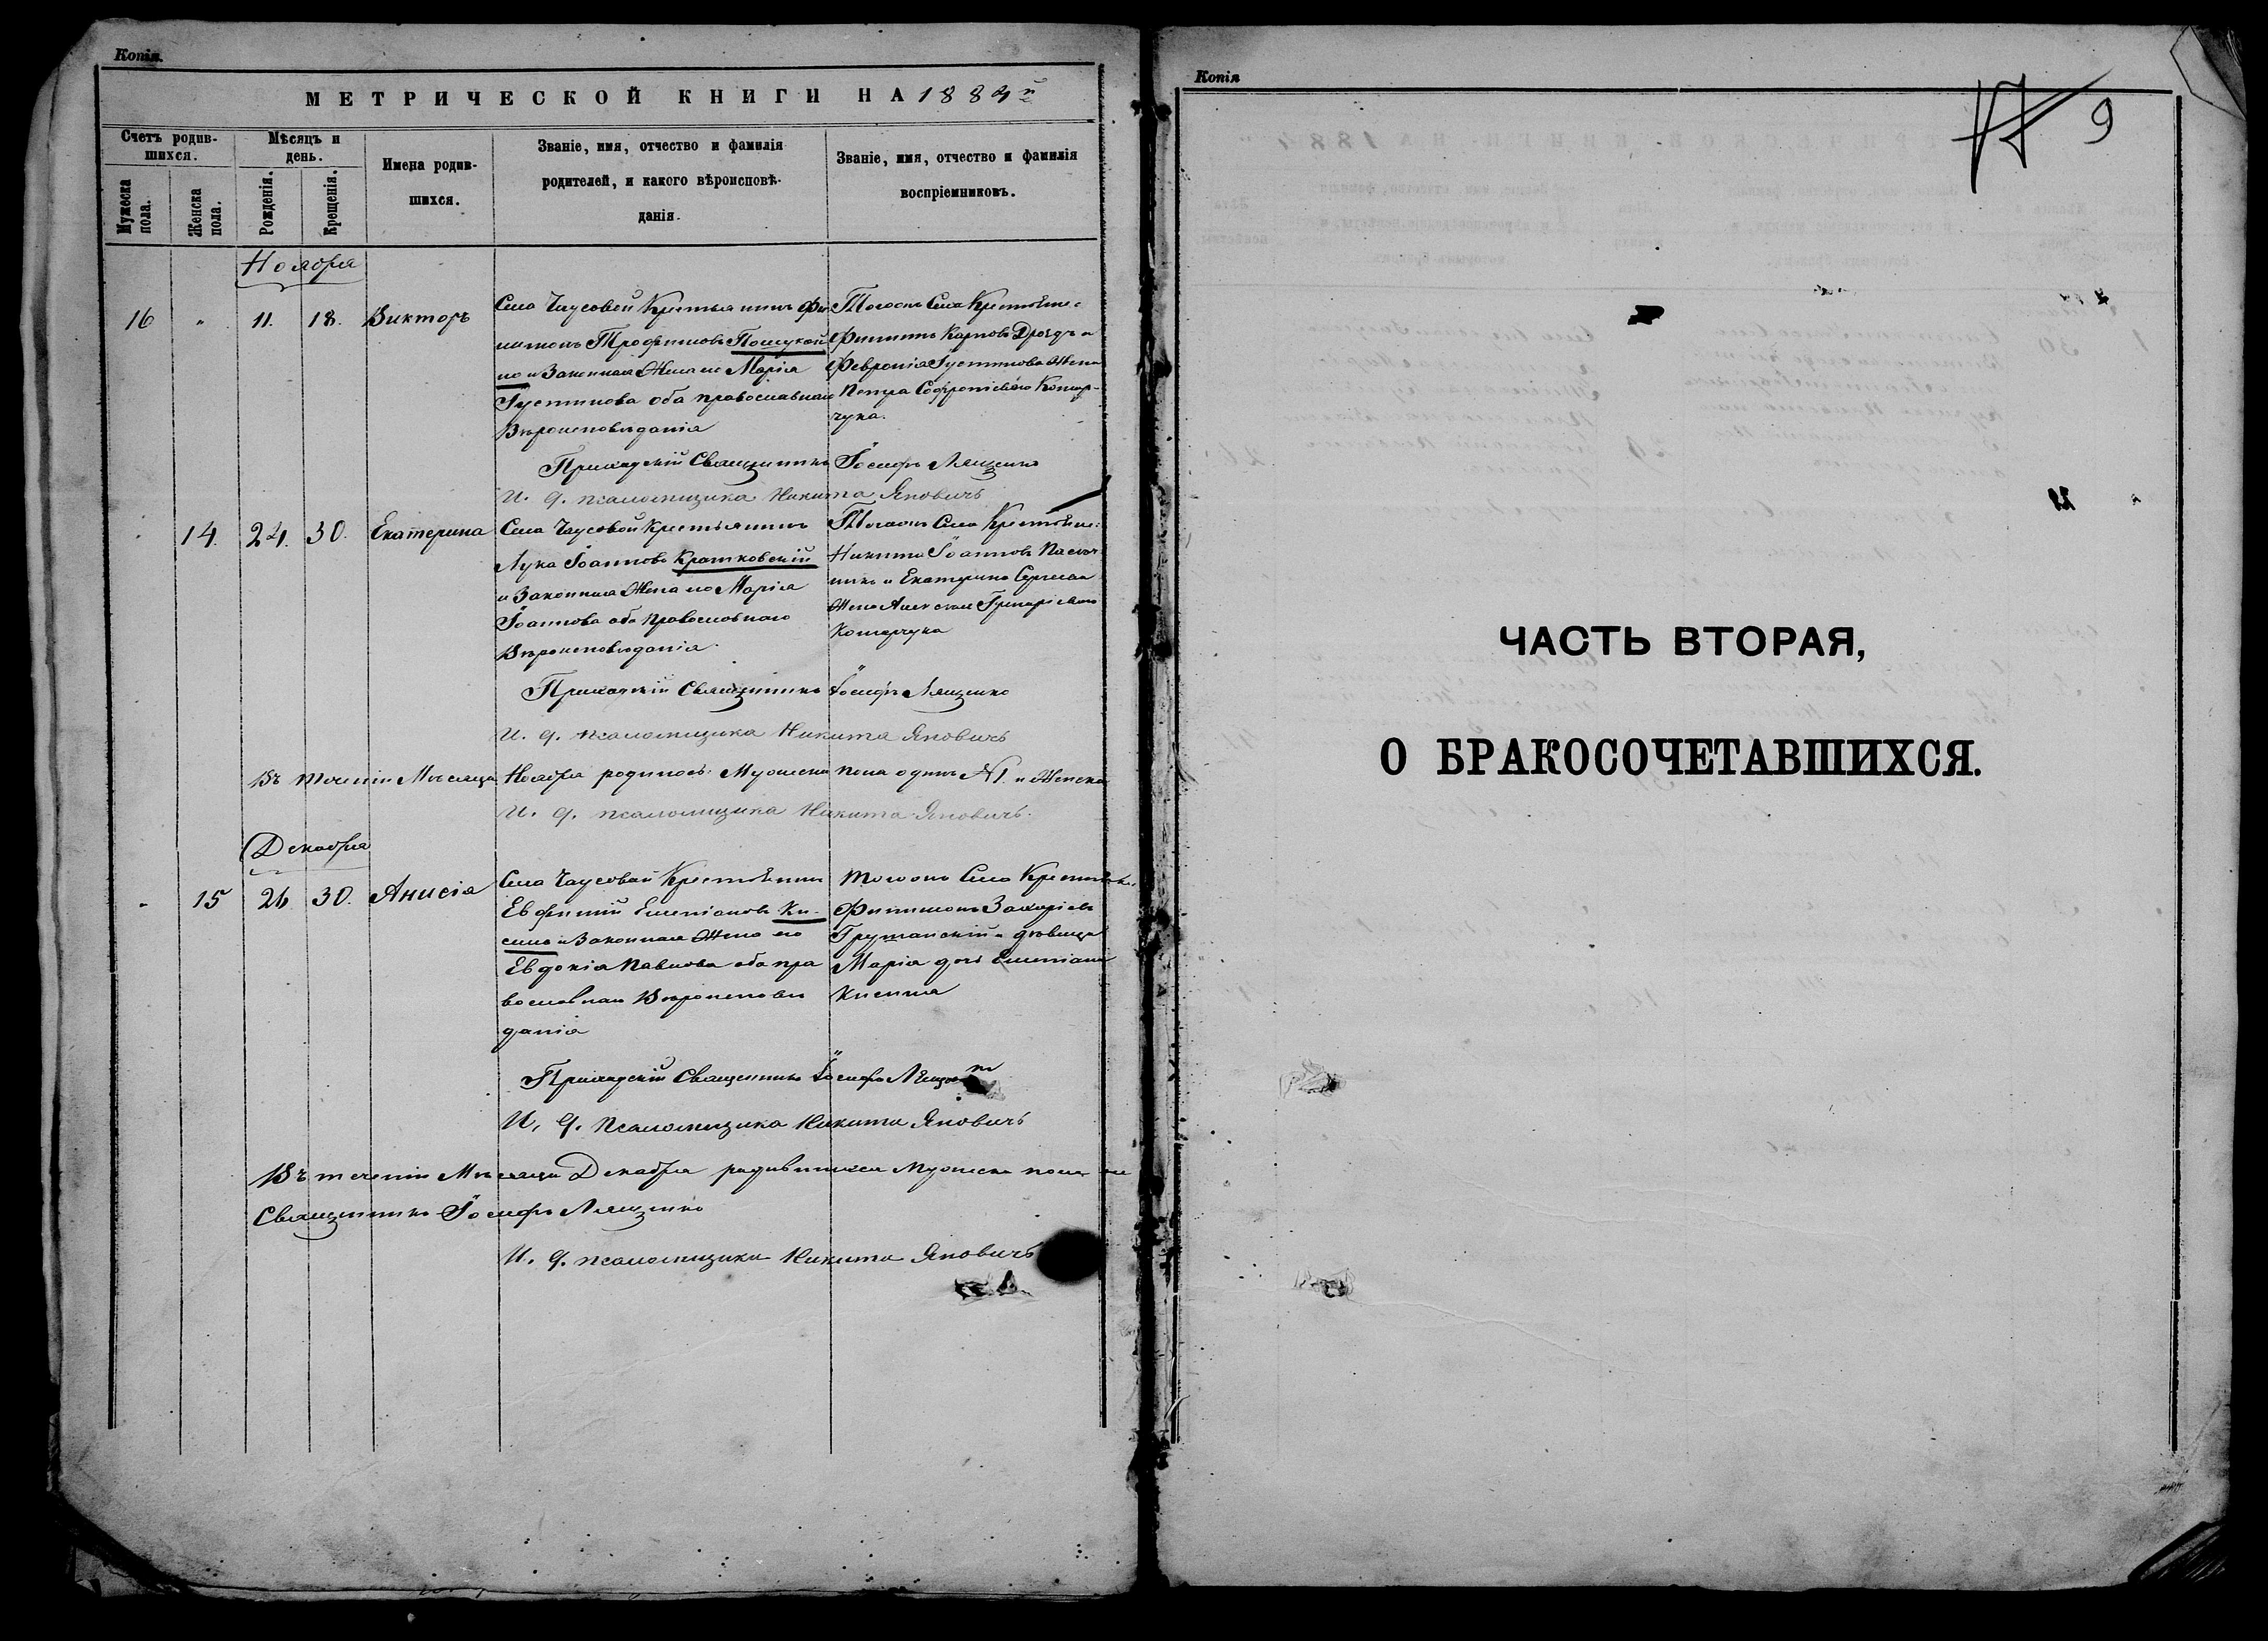 Копія.
МЕТРИЧЕСКОЙ КНИГИ НА 1884й
Счетъ родив-
шихся.
Мѣсяцъ и
день.
Имена родив-
шихся.
Званіе, имя, отчество и фамилія
родителей, и какого вѣроисповѣ-
данія.
Званіе, имя, отчество и фамилія
воспріемниковъ.
Мужеска
пола.
Женска
пола.
Рожденія.
Крещенія.
Ноября
16 " 11. 18. Викторъ
Села Чаусовой Крестьянинъ Фи
лимонъ Трофимовъ
и Законная Жена его Марія
Іустинова оба православнаго
Вѣроисповѣданія
Тогожъ Села Крестьяне:
Филиппъ Карповъ Дроздъ и
Февронія Іустинова Жена
Петра Софроніевого Комар-
чука.
Приходскій Священникъ Іосифъ Лященко
И. д. псаломщика Никита Яновичъ
14. 24. 30. Екатерина
Села Чаусовой Крестьянинъ
Лука Іоанновъ Кратковскій
и Законная Жена его Марія
Іоаннова оба Православнаго
Вѣроисповѣданія.
Тогожъ Села Крестьяне:
Никита Іоанновъ Пасеч-
никъ и Екатерина Сергіева
Жена Алексѣя Григоріевого
Комарчука
Приходскій Священникъ Іосифъ Лященко
И. д. псаломщика Никита Яновичъ
Въ теченіи Мѣсяца Ноября родилось: Мужеска пола одинъ №1. и Женска
И. д. псаломщика Никита Яновичъ.
Декабря
15 26 30. Анисія
Села Чаусовой Крестьянинъ
Евфимій Емеліановъ Ки-
и Законная Жена его
Евдокія Павлова оба пра
вославнаго Вѣроисповѣ
данія
Тогожъ Села Крестьяне:
Филимонъ Захаріевъ
и дѣвица
Марія дочь Емеліана
Приходскій Священникъ Іосифъ
И. д. псаломщика Никита Яновичъ
Въ теченіи Мѣсяца Декабря родившихся Мужеска пола не
Священникъ Іосифъ Лященко
И. д. псаломщика Никита Яновичъ
Копія
9
ЧАСТЬ ВТОРАЯ,
О БРАКОСОЧЕТАВШИХСЯ.